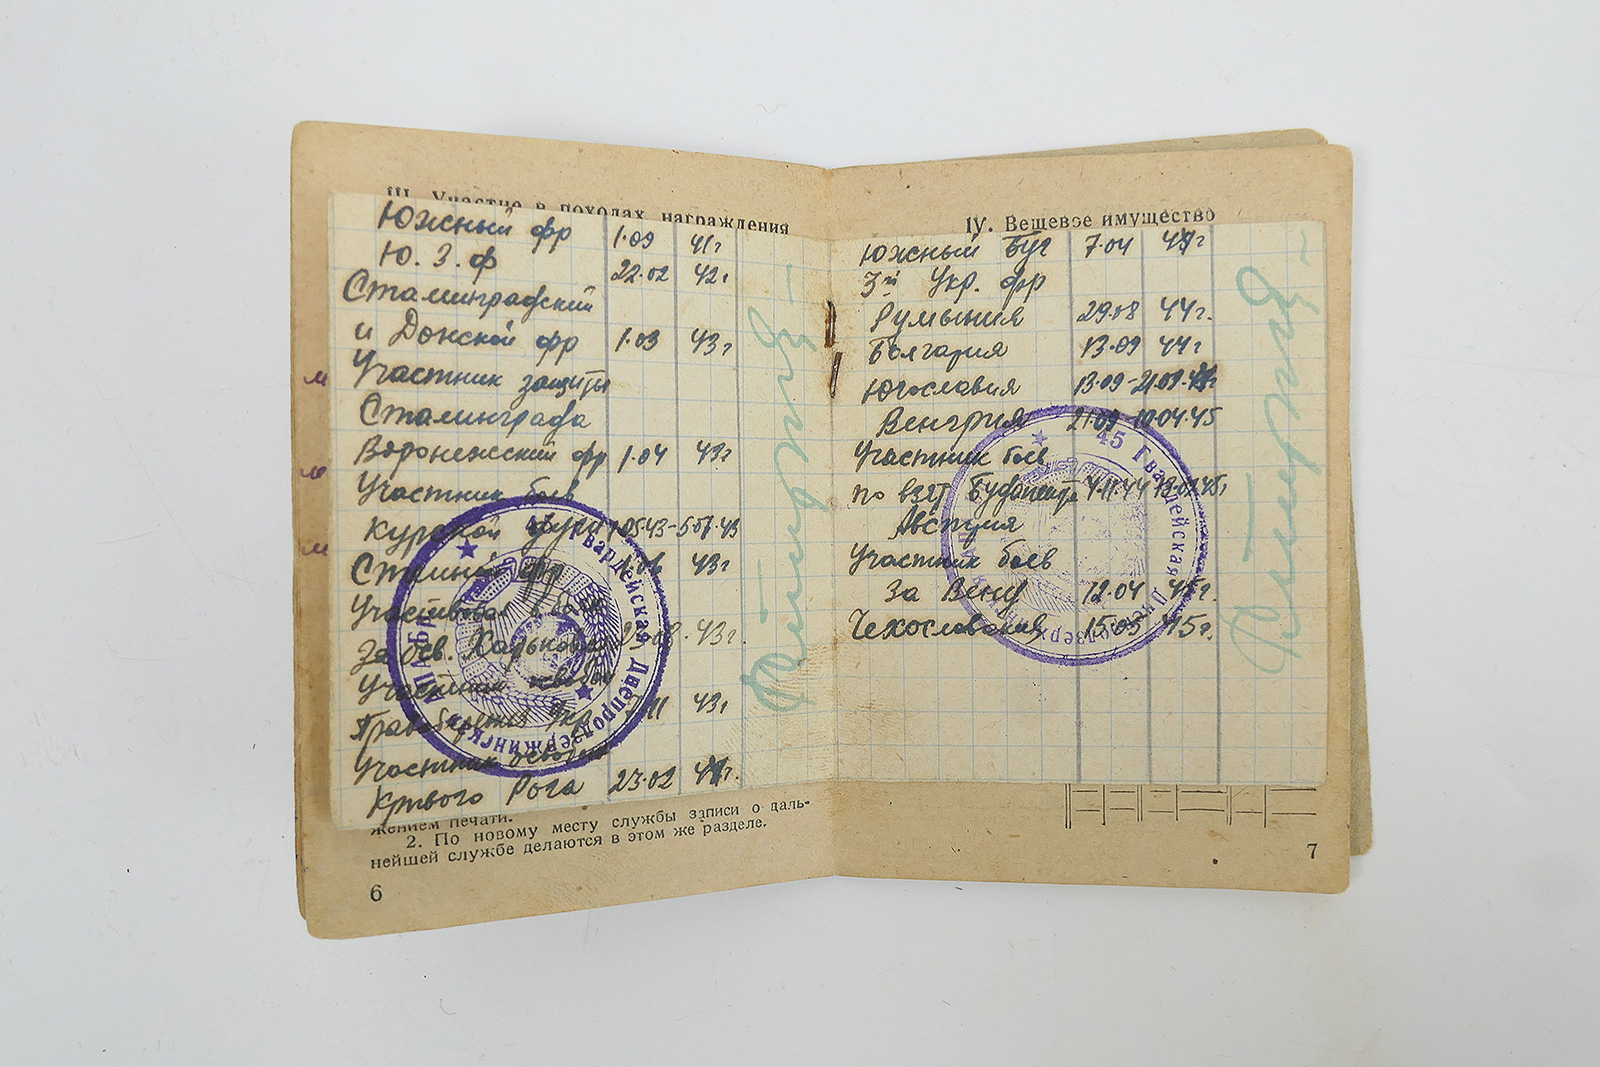 III. Участие в походах, награждения
Южный фр 1.09 41г
Ю. З. ф 22.02 42г
Сталинградский
и Донской фр 1.03 43г
м Участник защиты
Сталинграда
Воронежский фр 1.04 43г
м Участник боев
Курской дуги 05.43-5.07.43
м Степной фр 43г
Участвовал в боях
За осв. Харькова 23.08. 43г.
Участник освобож
Правобережн Укр 11 43г
Участник освобож
Кривого Рога 23.02 44г.
жением печати.
2. По новому месту службы записи о даль-
нейшей службе делаются в этом же разделе.
6
45 Гвардейская Днепродзержинская
IV. Вещевое имущество
Южный Буг 7.04 44г
3й Укр. фр
Румыния 29.08 44г.
Болгария 13.09 44г
Югославия 13.09-21.09.44г
Венгрия 21.09 10.04.45
Участник боев
по взят Будапешта 4.11.44 13.02.45г
Австрия
Участник боев
За Вену 12.04 45г.
Чехословакия 15.05 45г.
45 Гвардейская Днепродзержинская
7